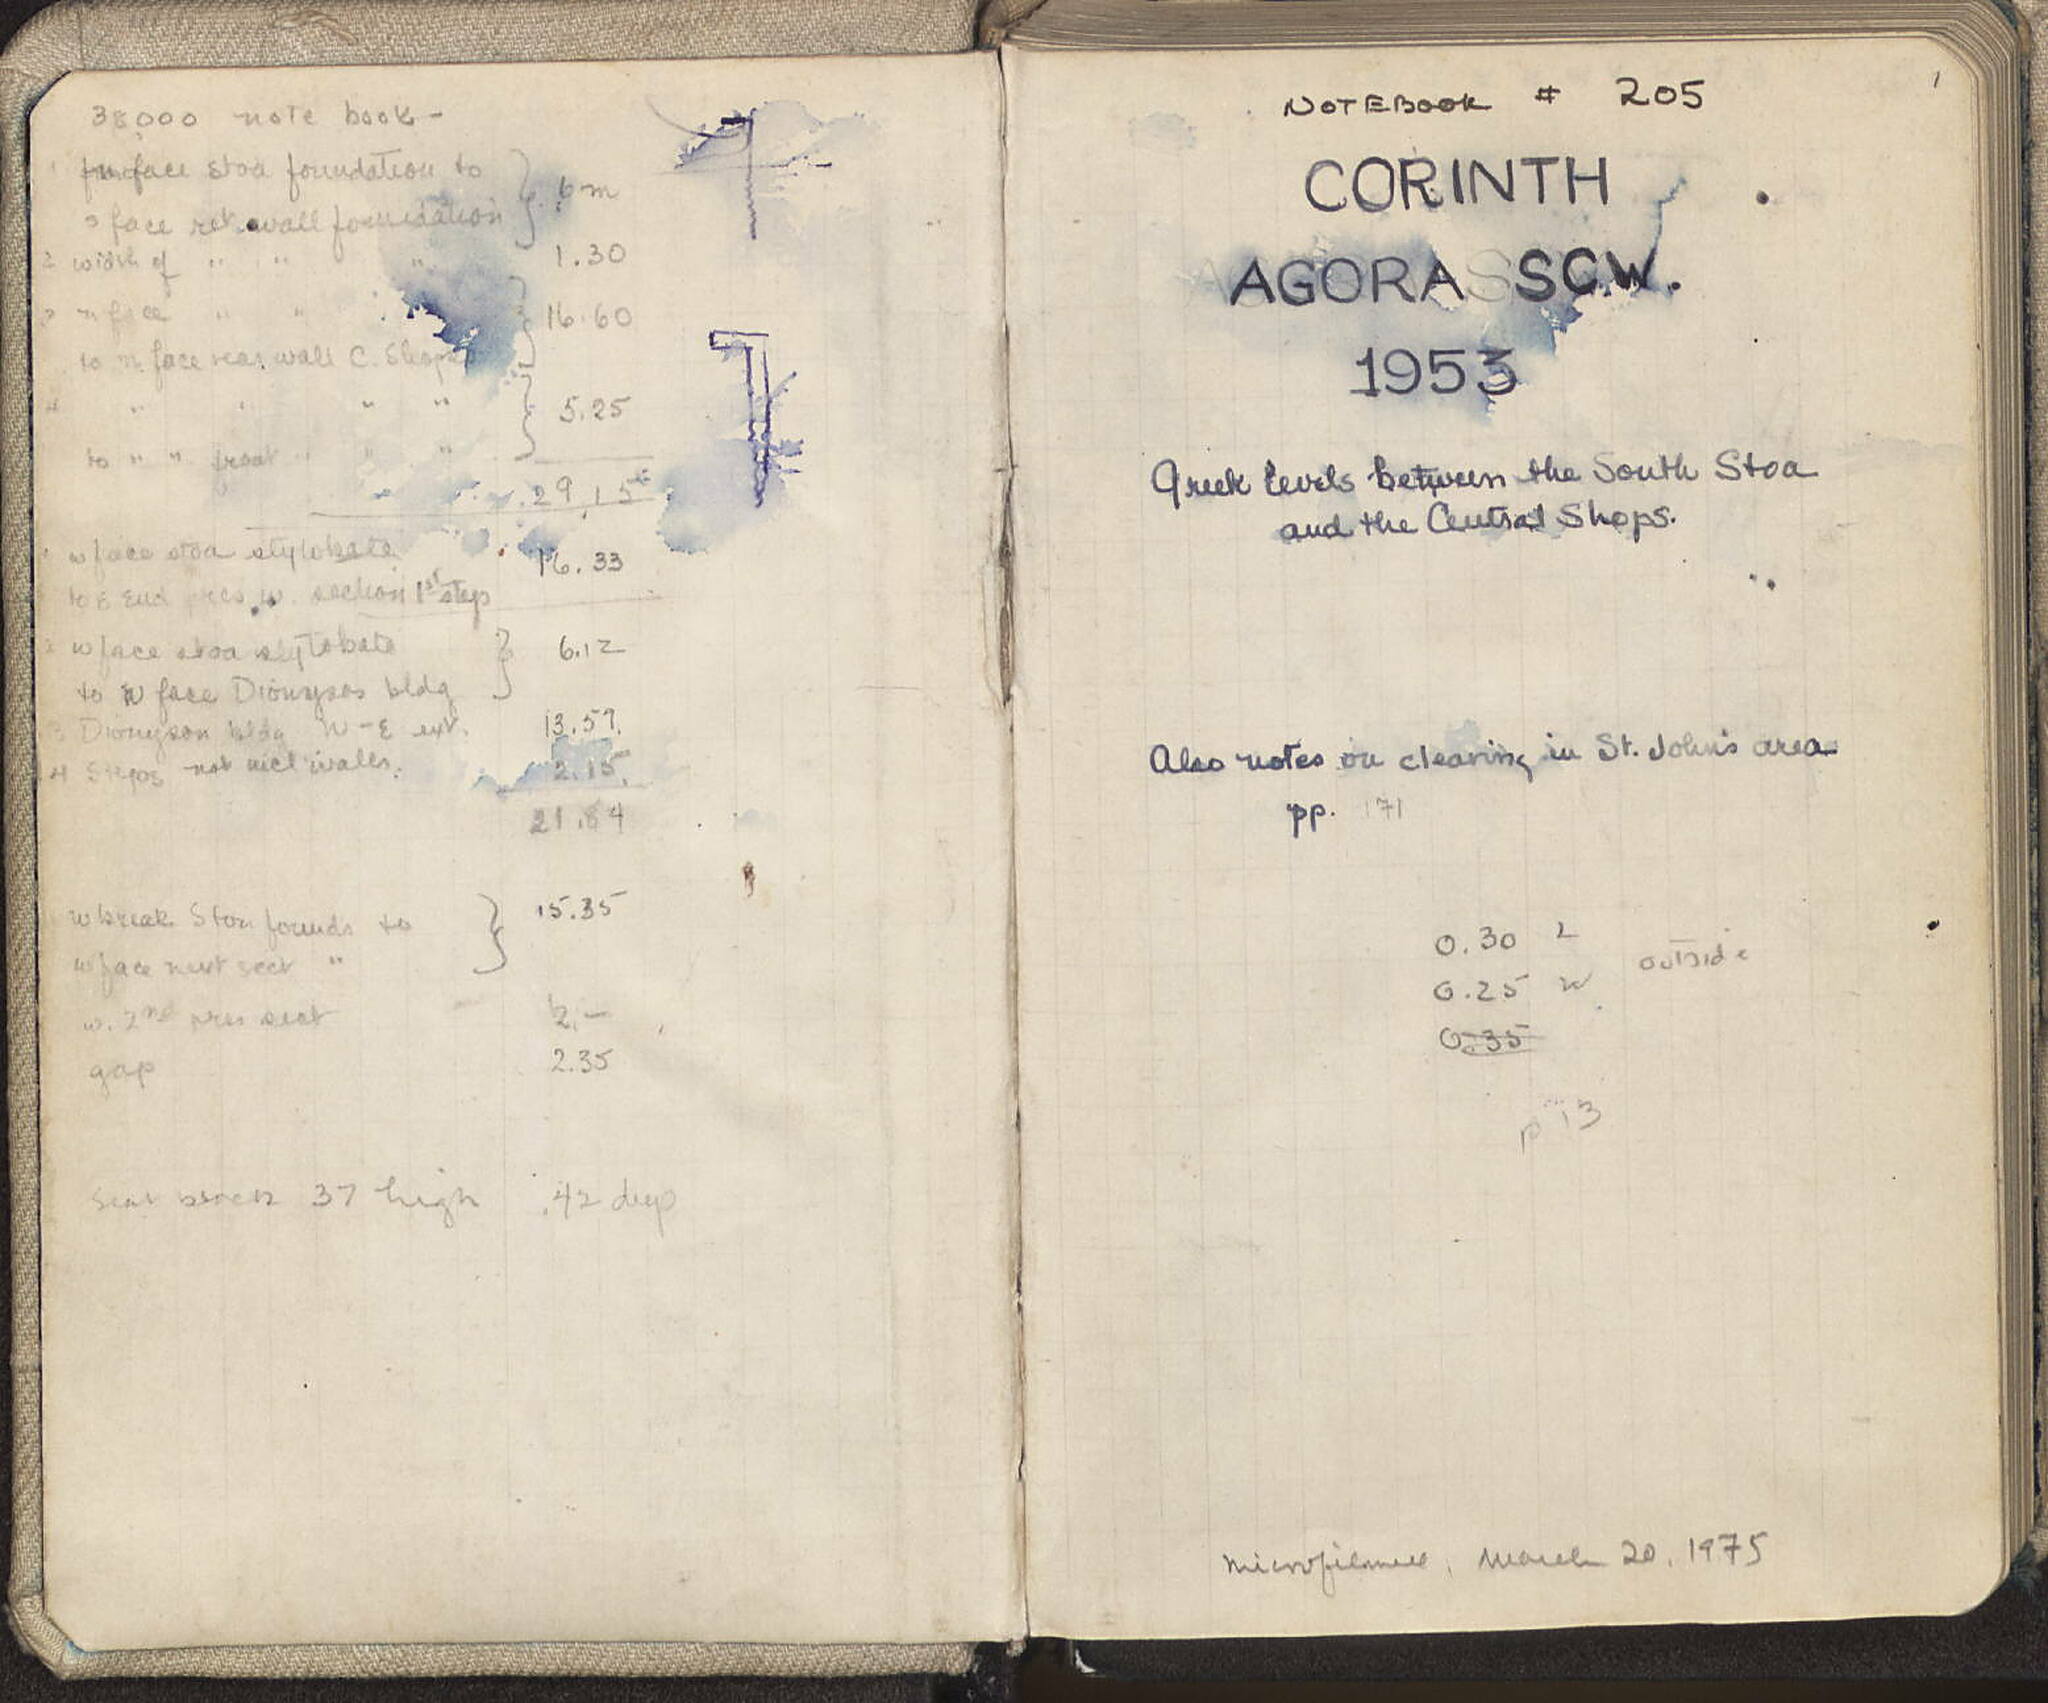 38,000 note book -
1 face stoa foundation to } 6 m
s face ret. wall foundation
2 width of " " " 1.30
3 n face " " } 16.60
to n face rear wall C. Shops
4 " " " " } 5.25
to " " front " " "
29.15
1 w face stoa stylobate 16.33
to E end pres. w. section 1st step
2 w face stoa stylobate } 6.12
to w face Dionysos bldg
3 Dionyson bldg W-E ext. 13.57
4 Steps not incl walls. 2.15
21.84
w break Stoa founds to } 15.35
w face next sect "
w. 2nd pres sect 2.-
gap 2.35
Seat 37 high .42 deep
1
NOTEBOOK # 205
CORINTH
AGORA S.C.W.
1953
Greek levels between the South Stoa
and the Central Shops.
Also notes on clearing in St. John's area
pp. 171
0.30 L
0.25 W outside
0.35
p 13
microfilmed, March 20, 1975